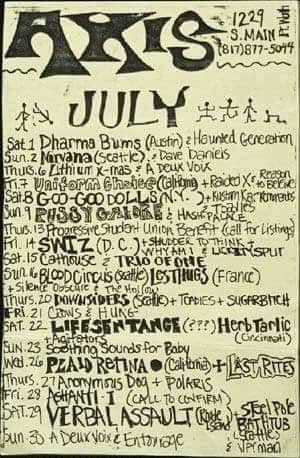 AXIS
1229
S. MAIN
Ft. Worth
(817)877-5044
JULY
Sat. 1 Dharma Bums (Austin) & Haunted Generation
Sun. 2 Nirvana (Seattle) & Dave Daniels
Thurs. 6 Lithium X-mas & A Deux Voix
Fri. 7 Uniform Choice (California) + Raided X + Reason to Believe
Sat. 8 GOO-GOO-DOLLS (N.Y.)
Sun. 9 PUSSY GALORE &
Thurs. 13 Progressive Student Union Benefit (call for listings)
Fri. 14 SWIZ (D.C.) + SHUDDER TO THINK +
WHY AM I &
Sat. 15 Cathouse & TRIO OF ONE
Sun. 16 BLOOD CIRCUS (Seattle) LES THUGS (France)
+ Silence Obscure & The Hollow
Thurs. 20 DOWNSIDERS (Seattle) + TOADIES + SUGARBITCH
FRI. 21 CROWS & HUNG
SAT. 22 LIFE SENTANCE (???) Herb Tarlic
(Cincinnati)
+ Agitators
SUN. 23 Soothing Sounds for Baby
Wed. 26 PLAID RETINA (California) + LAST RITES
Thurs. 27 Anonymous Dog + POLARIS
Fri. 28 ASHANTI-I (CALL TO CONFIRM)
SAT. 29 VERBAL ASSAULT (Rhode Island) + STEEL POLE BATHTUB (Seattle)
& Verman
Sun. 30 A Deux Voix & Entourage